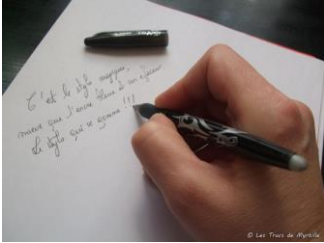 C'est le stylo magique,
mieux que l'encre
Le stylo qui se gomme !!!
© Les Trucs de Myrtille